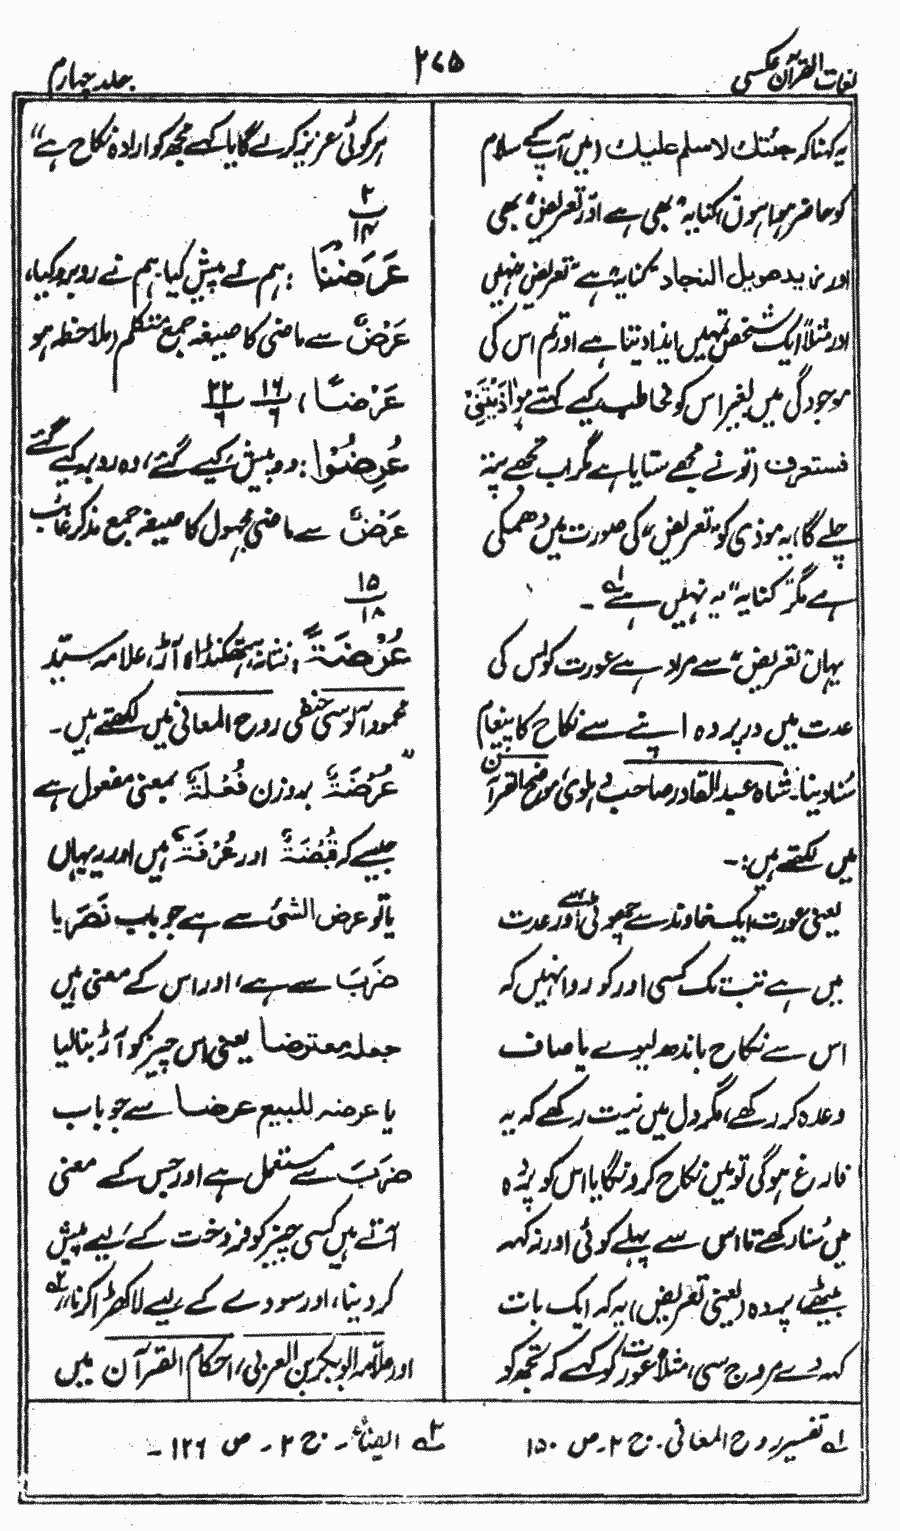 لغات القرآن عکسی
۲۷۵
جلد چہارم
یہ کہنا کہ جئتك لاسلم عليك (میں آپ کے سلام
کو حاضر ہوا ہوں) کنایہ بھی ہے اور تعریض بھی
اور زید طویل النجاد کنایہ ہے تعریض نہیں
اور مثلاً ایک شخص تمہیں ایذا دیتا ہے اور تم اس کی
موجودگی میں بغیر اس کو مخاطب کیے کہتے ہو اٰذَيْتَنِيْ
فستعرف (تو نے مجھے ستایا ہے مگر اب تجھے پتہ
چلے گا) یہ موذی کو "تعریض" کی صورت میں دھمکی
ہے مگر "کنایہ" یہ نہیں ہے لہ۔
یہاں تعریض سے مراد ہے عورت کو اس کی
عدت میں در پردہ اپنے سے نکاح کا پیغام
سُنا دینا۔ شاہ عبدالقادر صاحب دہلوی موضح القرآن
میں لکھتے ہیں:۔
یعنی عورت ایک خاوند سے چھوٹی ہے اور عدت
میں ہے تب تک کسی اور کو روا نہیں کہ
اس سے نکاح باندھ لیوے یا صاف
وعدہ کر رکھے، مگر دل میں نیت رکھے کہ یہ
فارغ ہوگی تو میں نکاح کروں گا یا اس کو پردہ
میں سُنا رکھے تا اسی سے پہلے کوئی اور نہ کہہ
بیٹھے، پردہ (یعنی تعریض) یہ کہ ایک بات
کہہ دے مروج سی، مثلاً عورت کو کہے کہ تجھ کو
ہر کوئی عزیز کرے گا یا کہے مجھ کو ارادہ نکاح ہے"
۲
۱۴
عَرَضْنَا : ہم نے پیش کیا۔ ہم نے روبرو کیا،
عَرْضٌ سے ماضی کا صیغہ جمع متکلم (ملاحظہ ہو
عَرْضًا)، ۱۶/۶ ۲۲/۶
عُرِضُوْا : وہ پیش کیے گئے، وہ روبرو کیے گئے
عَرْضٌ سے ماضی مجہول کا صیغہ جمع مذکر غائب
۱۵
۱۸
عُرْضَةً : نشانہ، ہتھکنڈا، آڑ، علامہ سید
محمود آلوسی حنفی روح المعانی میں لکھتے ہیں۔
"عُرْضَةٌ بروزن فُعْلَةٌ بمعنی مفعول ہے
جیسے کہ قُبْضَةٌ اور غُرْفَةٌ ہیں اور یہاں
یا تو عرض الشئ سے ہے جو باب نَصَرَ یا
ضَرَبَ سے ہے، اور اس کے معنی ہیں
جعله معترضا یعنی اس چیز کو آڑ بنا لیا
یا عرضه للبيع عرضا سے جو باب
ضَرَبَ سے مستعمل ہے اور جس کے معنی
آتے ہیں کسی چیز کو فروخت کے لیے پیش
کر دینا، اور سودے کے لیے لا کھڑا کرنا"۲ہ
اور علامہ ابوبکر بن العربی، احکام القرآن میں
۱ہ تفسیر روح المعانی۔ ج ۲۔ ص ۱۵۰
۲ہ ایضاً۔ ج ۲۔ ص ۱۲۶۔